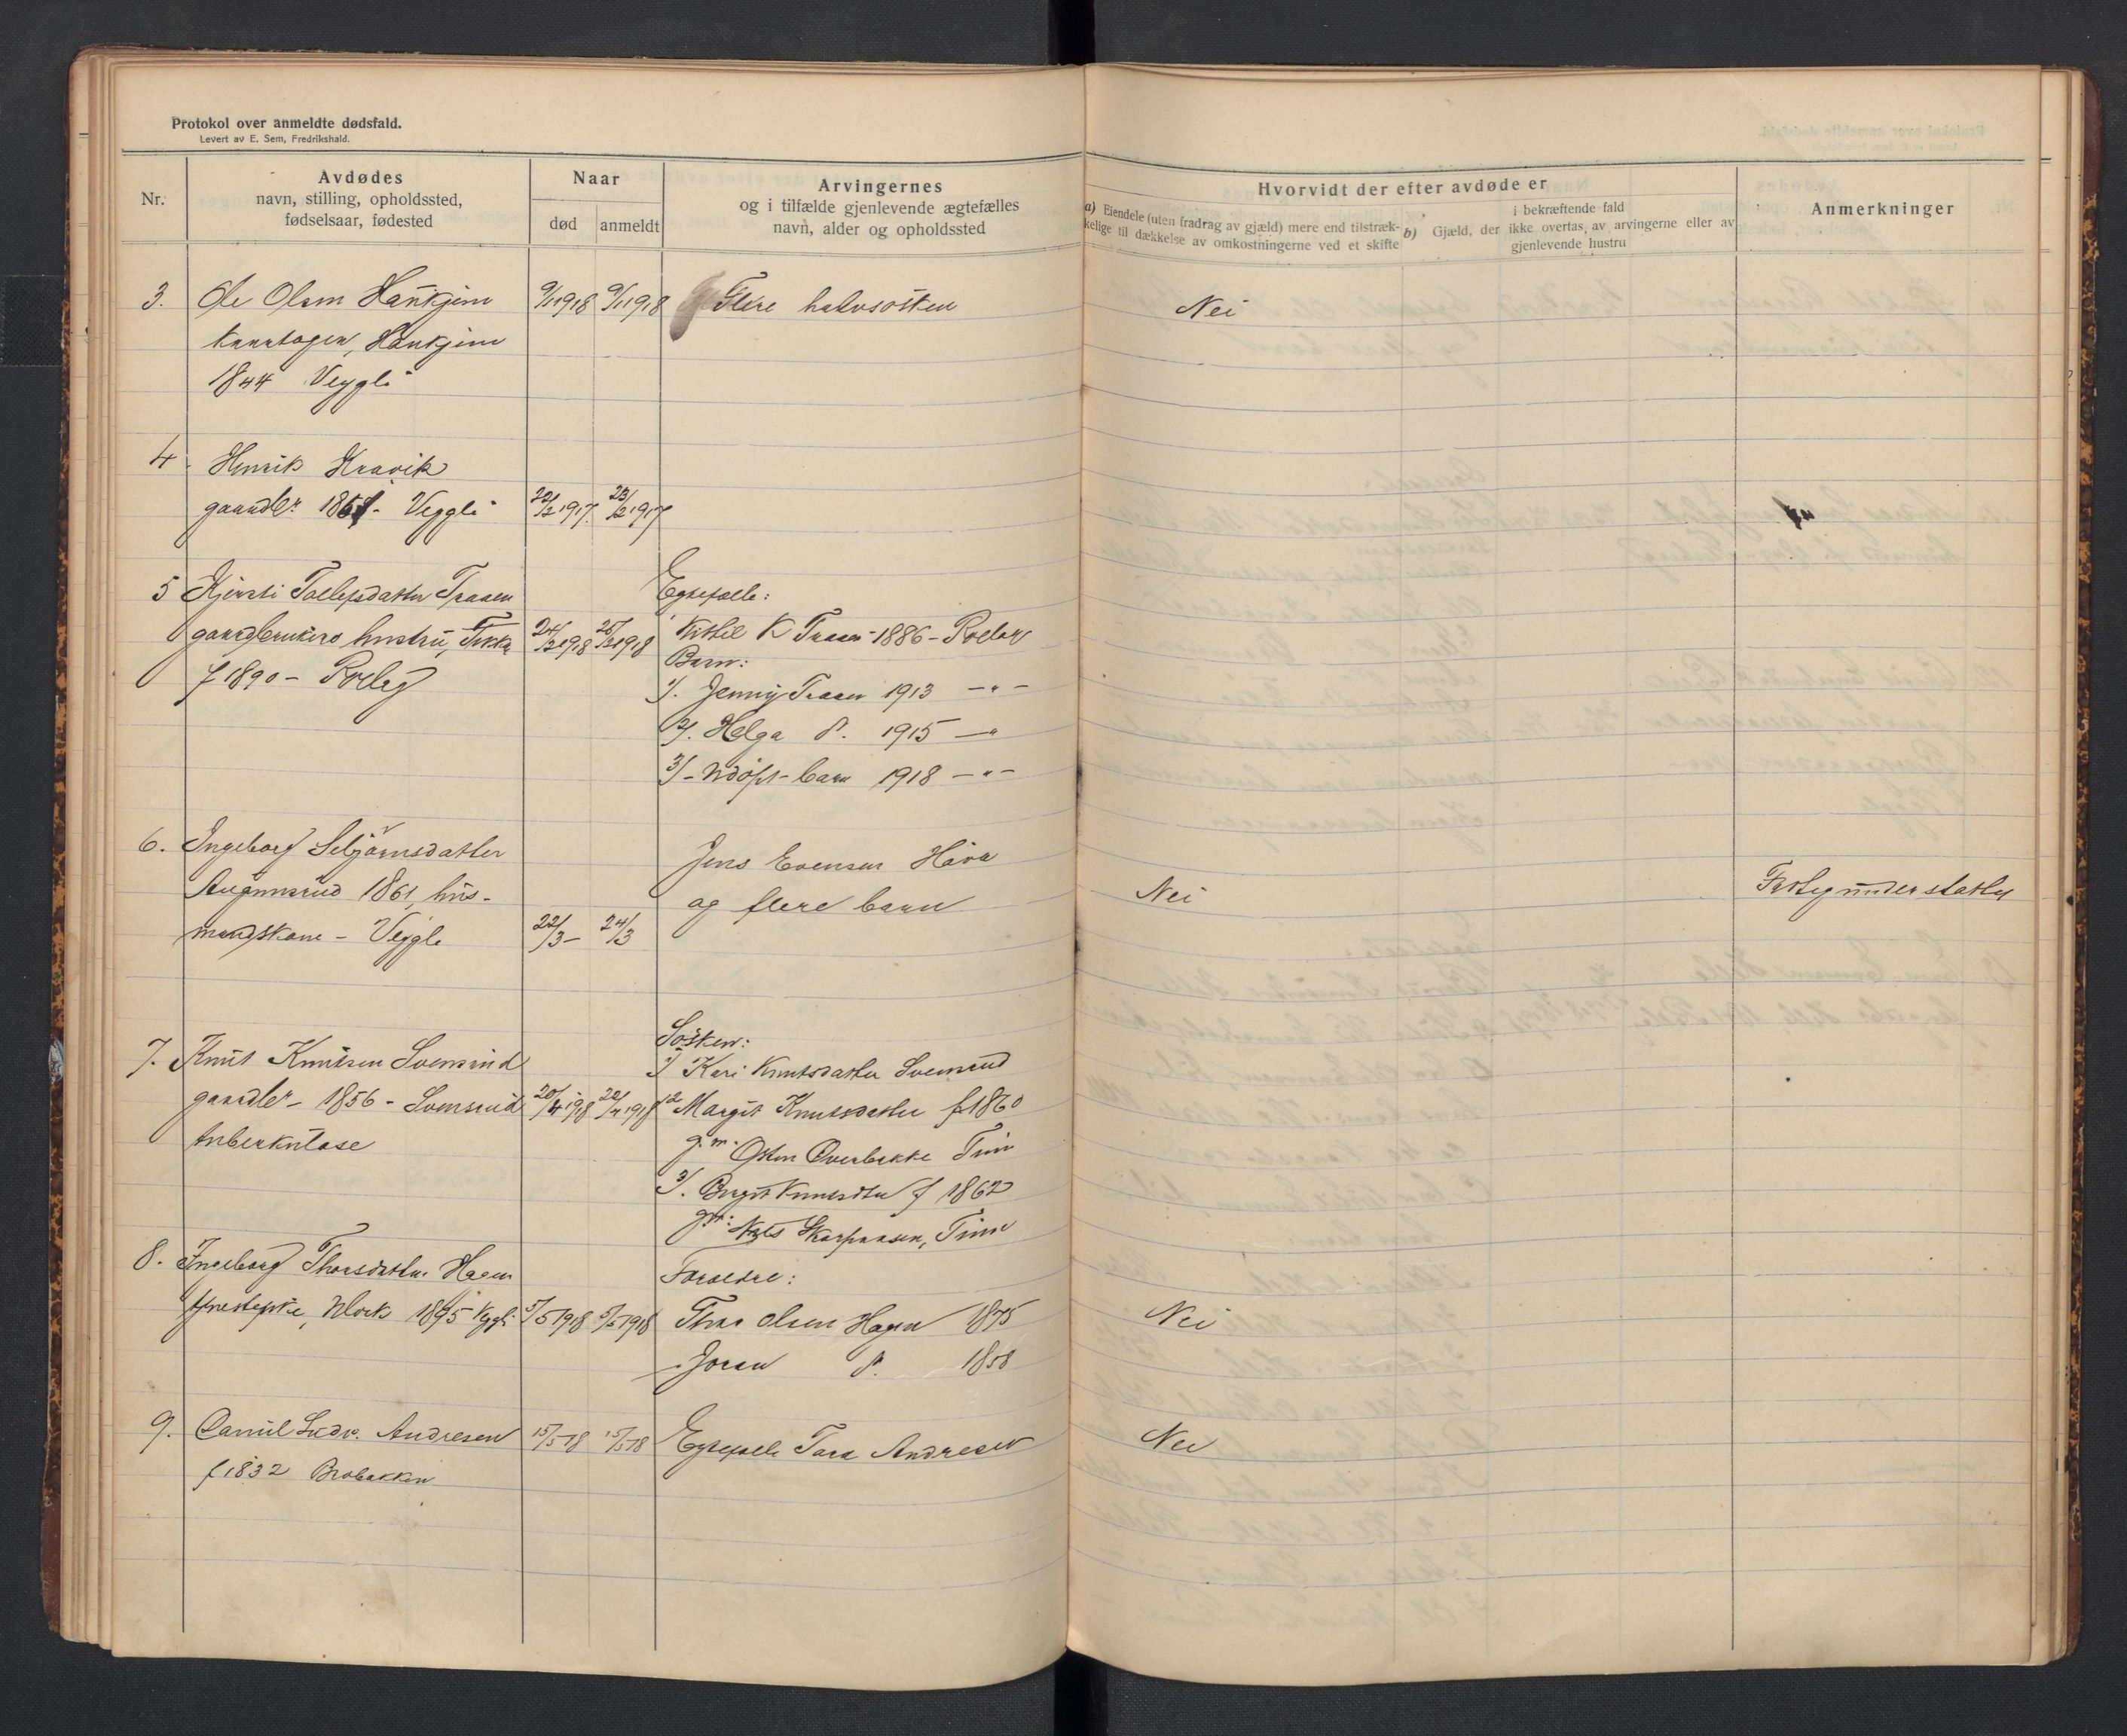 Protokol over anmeldte dødsfald.
Levert av E. Sem, Fredrikshald.
Nr.
Avdødes
navn, stilling, opholdssted,
fødselsaar, fødested
Naar
død
anmeldt
Arvingernes
og i tilfælde gjenlevende ægtefælles
navn, alder og opholdssted
Hvorvidt der efter avdøde er
a) Eiendele (uten fradrag av gjæld) mere end tilstræk-
kelige til dækkelse av omkostningerne ved et skifte
i bekræftende fald
b) Gjæld, der ikke overtas av arvingerne eller av
gjenlevende hustru
Anmerkninger
3. Ole Olsen 9/1 1918 9/1 1918 Flere halvsøsken Nei
1844 Veggli
4. Henrik Kravik
gaardbr. Veggli 22/2 1917. 23/2 1917
5 Kjersti Traaen Egtefælle:
gaardbrukers hustru, 24/2 1918 25/2 1918 Kittel K Traaen 1886 –
f 1890 – Rolleg Barn:
1/. Jenny Traaen 1913 – " –
2/. Helga d. 1915 – "
3/ – Udøpt – barn 1918 – " –
6. Ingeborg Jens Evensen
1861, hus- og flere barn Nei
mandskone – Veggli 22/3 – 24/3
Søsken:
7. Knut Knutsen Svensrud 1/ Kari Knutsdatter Svensrud
gaardbr – 1856 – Svensrud 20/4 1918 22/4 1918 2 Margit Knutsdatter f 1860
tuberkulose g. m. Østen Tinn
3/. Birgit f 1862
g. m. Tinn
8. Ingeborg Thorsdatter Hagen Foreldre:
tjenestepike, 1895 Veggli 5/5 1918 5/5 1918 Thor Olsen Hagen 1875 Nei
Joran d. 1858
9. Andresen 15/5 18 15/5 18 Egtefælle Andresen Nei
f 1832 Brobakken